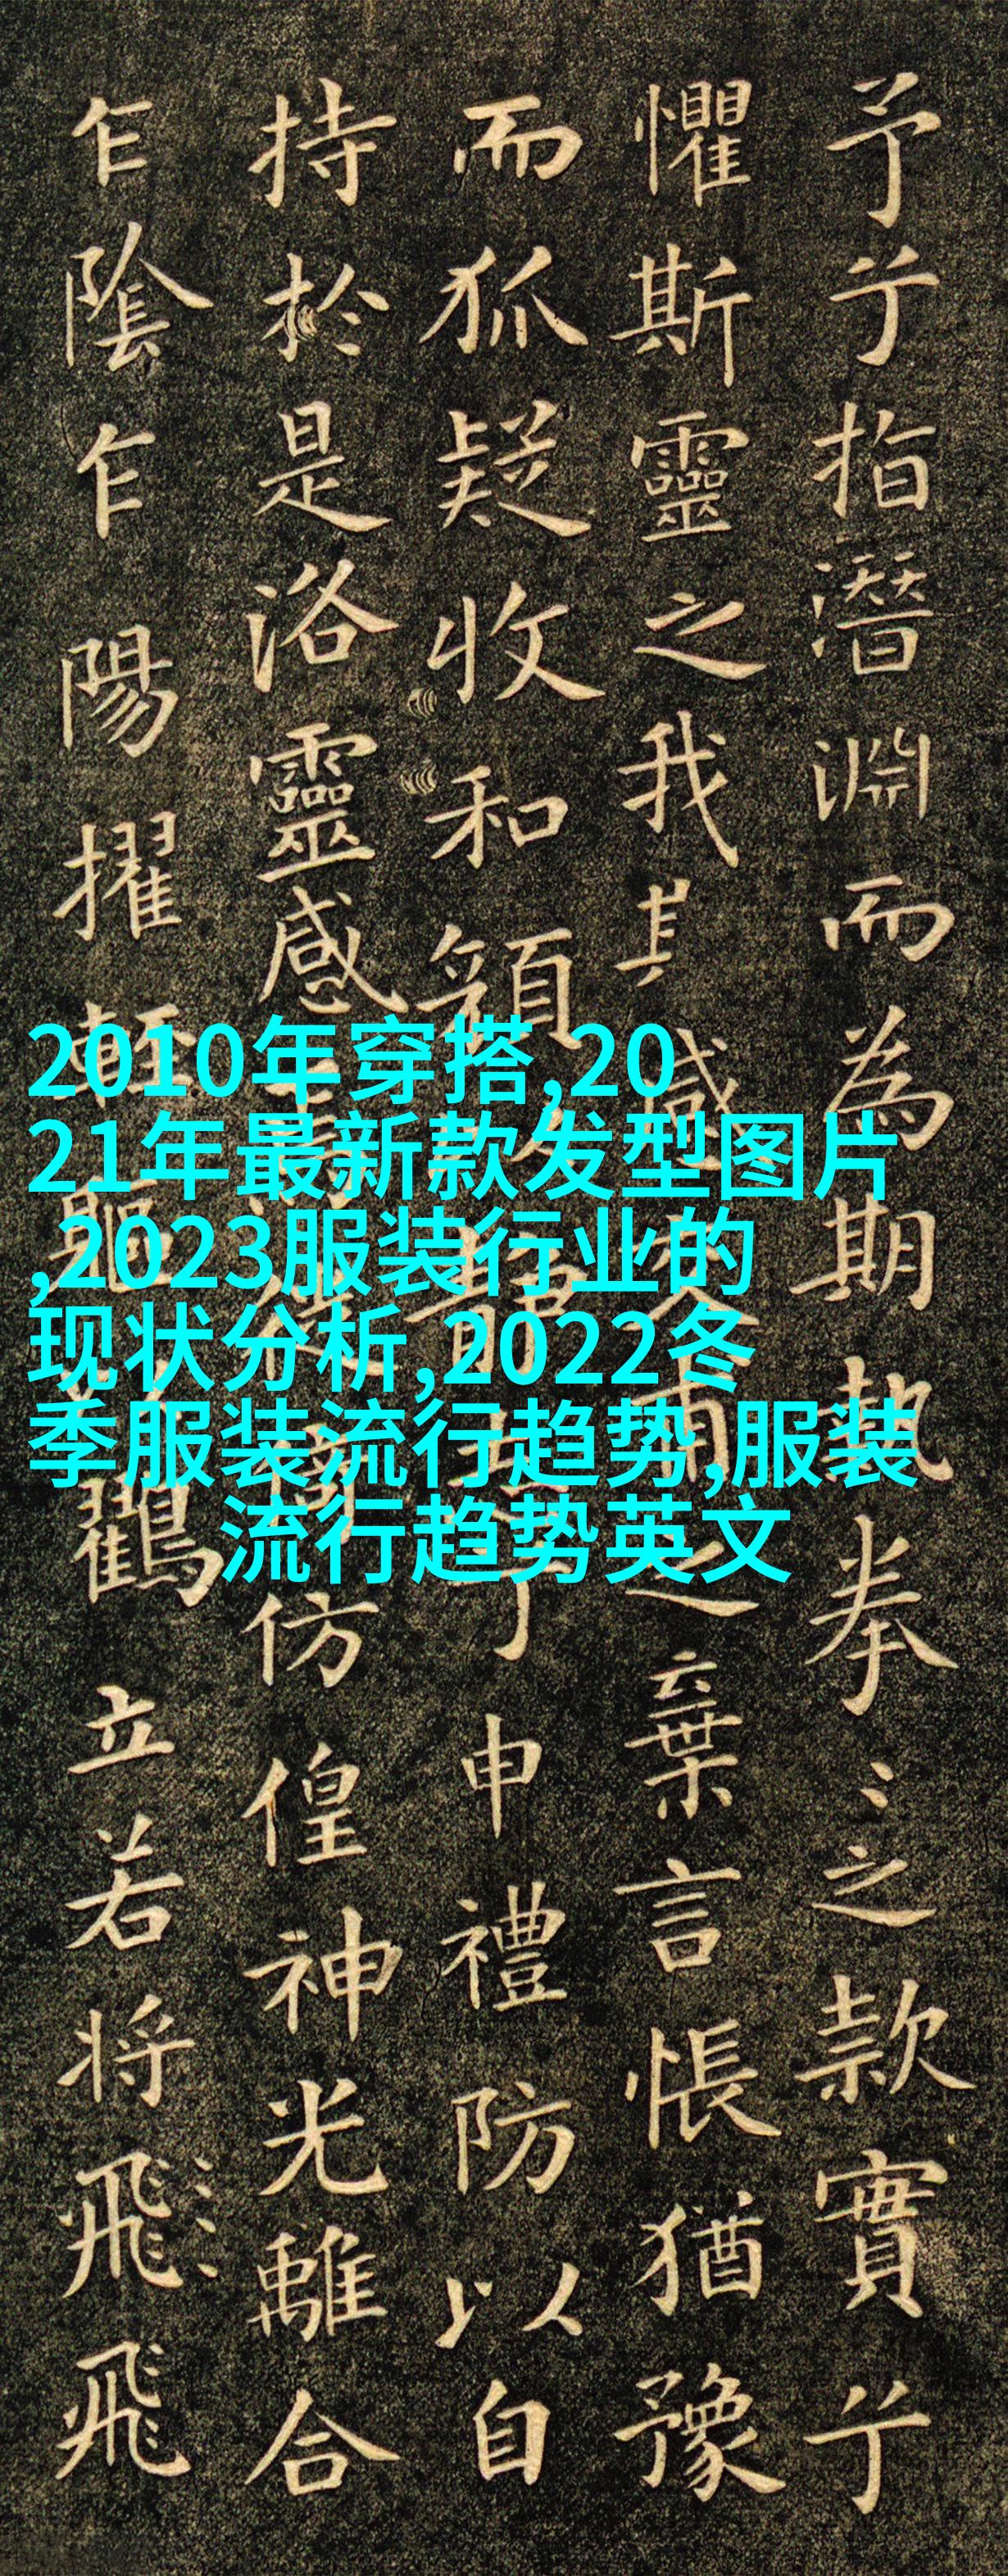 予兮指潛淵而為期執拳〻之款實兮
懼斯靈之我其感交甫之棄言悵猶豫
而狐疑收和顏兮申禮防以自
持於是洛靈感焉倚仿偟神光離合
乍陰乍陽擢輕軀鶴立若將飛飛
2010年穿搭,20
21年最新款发型图片
,2023服装行业的
现状分析,2022冬
季服装流行趋势,服装
流行趋势英文